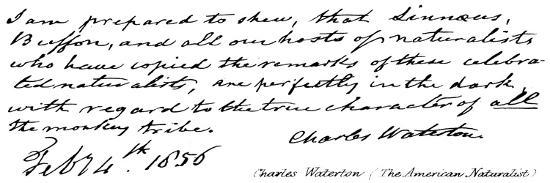 I am prepared to shew, that Linnæus,
Buffon, and all our hosts of naturalists
who have copied the remarks of these celebra-
ted naturalists, are perfectly in the dark,
with regard to the true character of all
the monkey tribe.
Charles Waterton
Feby 4th. 1856
Charles Waterton (The American Naturalist)